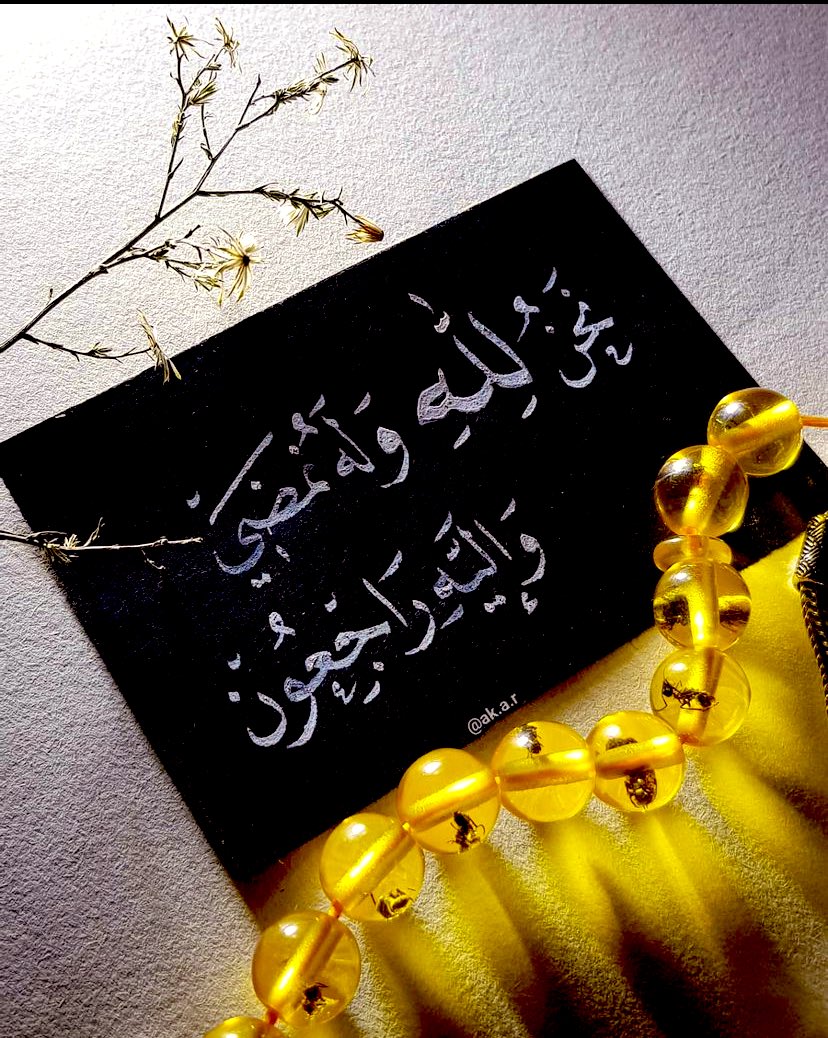 نَحْنُ لِلّٰهِ وَلَهُ نَمْضِي
وَإِلَيْهِ رَاجِعُونَ
@ak.a.r